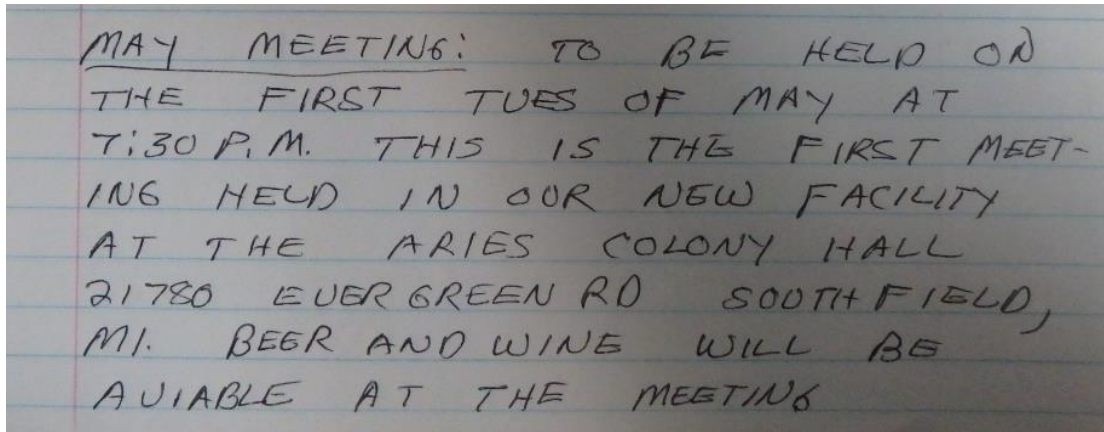 MAY MEETING: TO BE HELD ON
THE FIRST TUES OF MAY AT
7:30 P.M. THIS IS THE FIRST MEET-
ING HELD IN OUR NEW FACILITY
AT THE ARIES COLONY HALL
21780 EVERGREEN RD SOUTHFIELD,
MI. BEER AND WINE WILL BE
AVIABLE AT THE MEETING